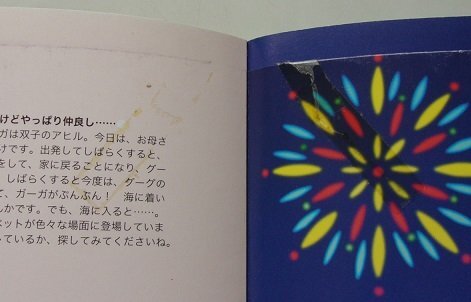 けどやっぱり仲良し……
ガは双子のアヒル。今日は、お母さ
けです。出発してしばらくすると、
をして、家に戻ることになり、グー
。しばらくすると今度は、グーグの
て、ガーガがぷんぷん! 海に着い
んかです。でも、海に入ると……。
ペットが色々な場面に登場していま
っているか、探してみてくださいね。